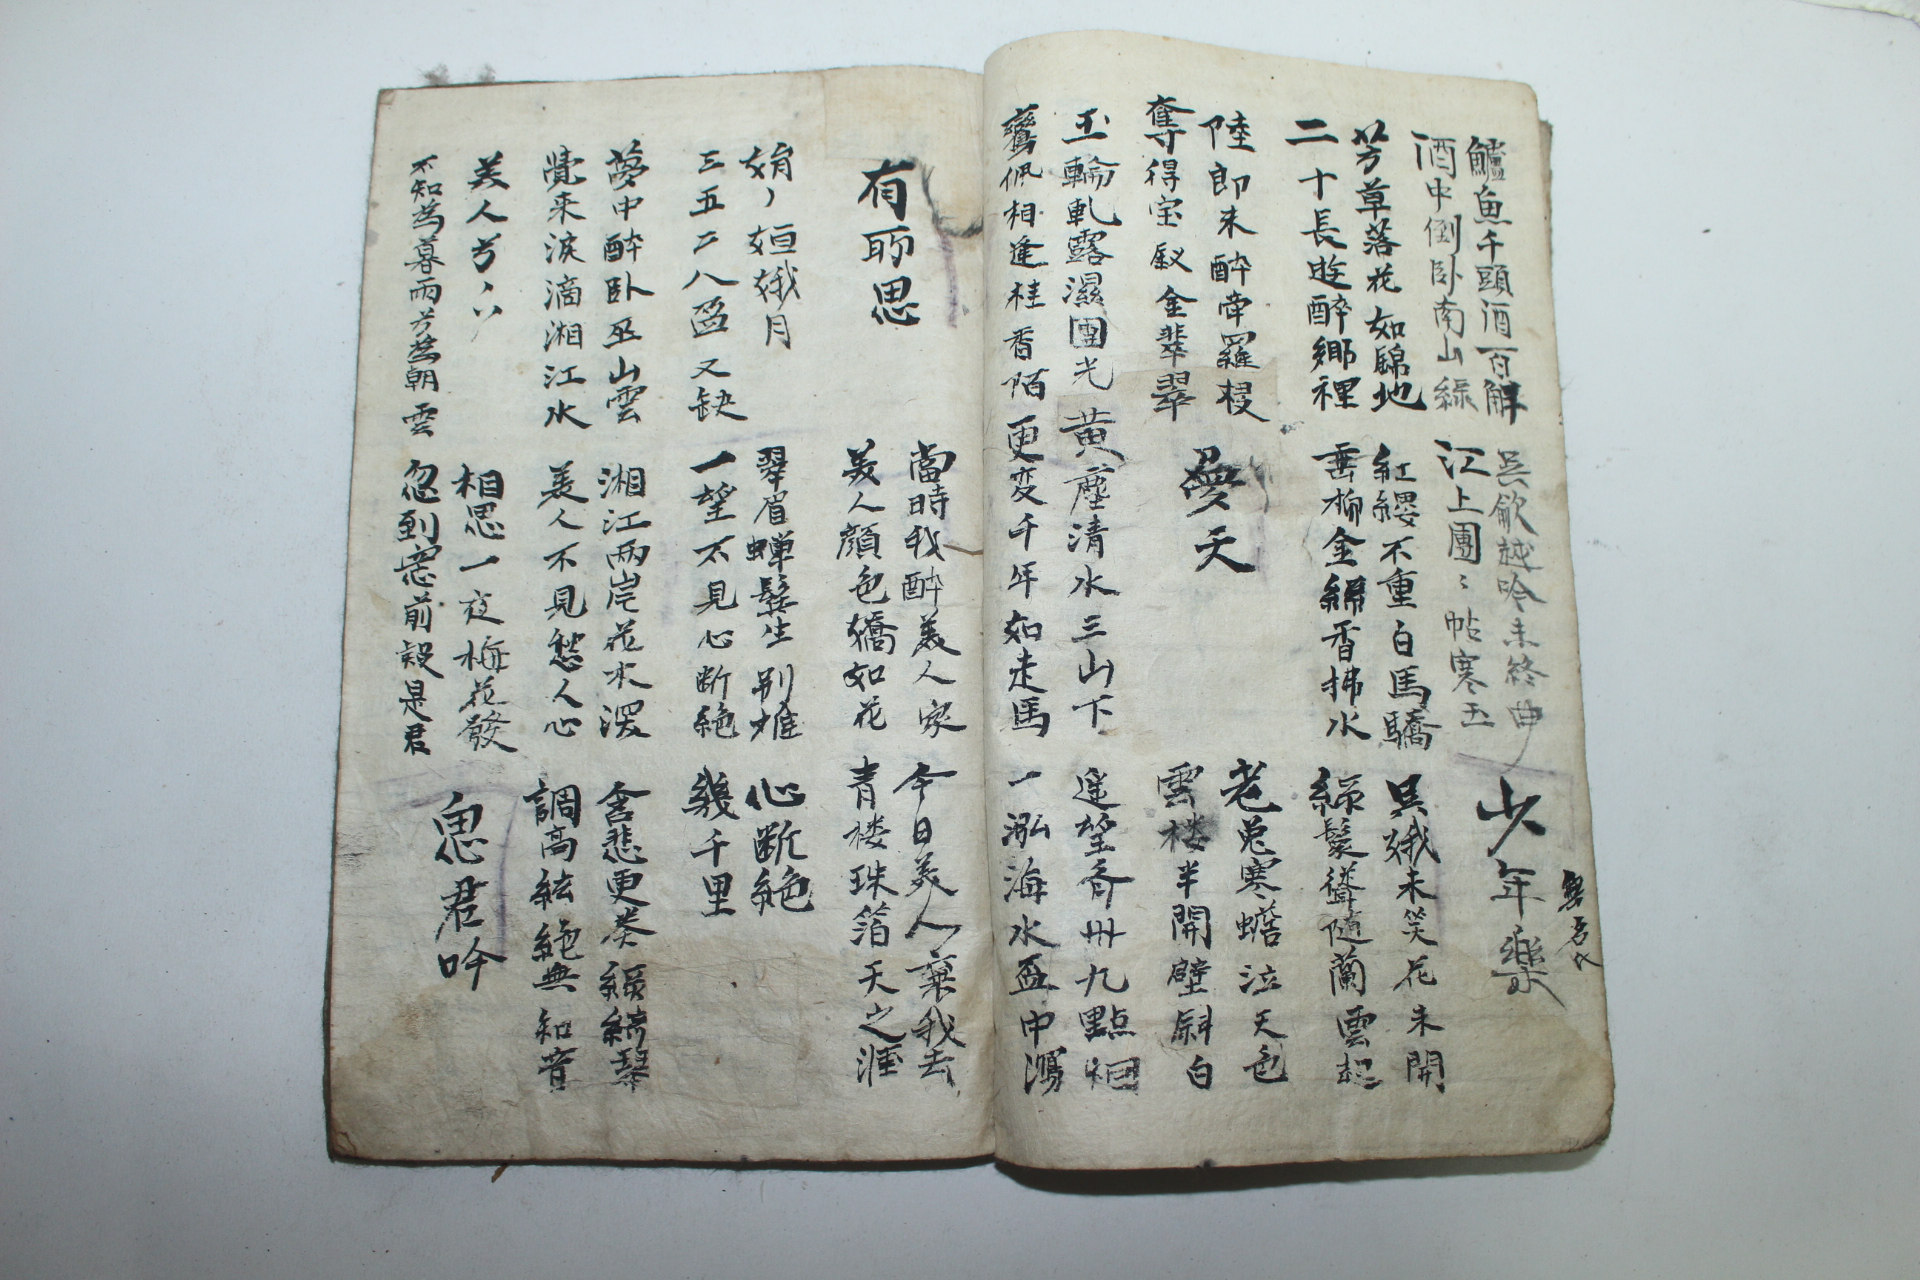 鱸魚千頭酒百斛
酒中倒卧南山綠
吳歈越吟未終曲
江上團〻帖寒玉
少年樂
芳草落花如錦地
二十長遊醉鄉裡
紅纓不重白馬驕
垂柳金絲香拂水
吳娥未笑花未開
綠鬢聳隨蘭雲起
陸郎未醉牽羅
奪得宝釵金翡翠
夢天
老兎寒蟾泣天色
雲楼半開壁斜白
玉輪軋露濕團光
鸞佩相逢桂香陌
黃塵清水三山下
更变千年如走馬
遙望齊州九點烟
一泓海水盃中瀉
有所思
當時我醉美人家
美人顔色嬌如花
今日美人棄我去
青楼珠箔天之涯
娟〻姮娥月
三五二八盈又缺
翠眉蟬鬂生別離
一望不見心断絶
心断絶
幾千里
夢中醉卧巫山雲
覺来淚滴湘江水
湘江兩岸花木深
美人不見愁人心
含悲更奏綠綺琴
調高絃絶無知音
美人兮〻〻
不知為暮雨兮為朝雲
相思一夜梅花發
忽到窓前疑是君
思君吟